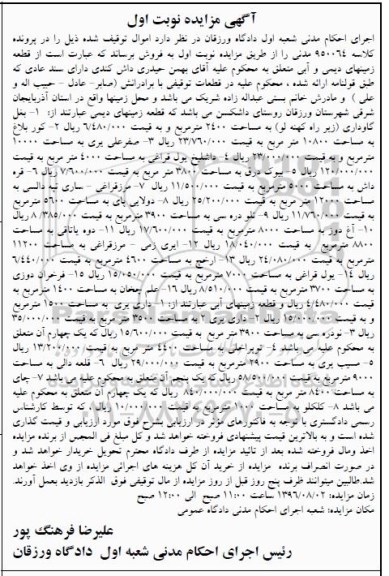 آگهی مزایده نوبت اول
اجرای احکام مدنی شعبه اول دادگاه ورزقان در نظر دارد اموال توقیف شده ذیل را در پرونده
کلاسه ۹۵۰۰۶۴ مدنی را از طریق مزایده نوبت اول به فروش برساند که عبارت است از قطعه
زمینهای دیمی و آبی متعلق به محکوم علیه آقای بهمن حیدری داش کندی دارای سند عادی که
طبق قولنامه ارائه شده ، محکوم علیه در قطعات توقیفی با برادرانش (صابر- عادل – حبیب اله و
علی ) و مادرش خانم بستی عبداله زاده شریک می باشد و محل زمینها واقع در استان آذربایجان
شرقی شهرستان ورزقان روستای داشکسن می باشد که قطعه زمینهای دیمی عبارتند از: ۱- بغل
گاوداری (زیر راه کهنه لو) به مساحت ۲۴۰۰ مترمربع و به قیمت ۶/۴۸۰/۰۰۰ ریال ۲- کور بلاغ
به مساحت ۱۰۸۰۰ متر مربع به قیمت ۲۳/۷۶۰/۰۰۰ ریال ۳- صفرعلی یری به مساحت ۱۰۰۰۰
مترمربع و به قیمت ریال ۴- داشلیخ یول قراغی به مساحت ۴۰۰۰ متر مربع به قیمت
۱۲/۰۰۰/۰۰۰ ریال ۵- بیوک درق به مساحت ۳۸۰۰ متر مربع به قیمت ۷/۶۰۰/۰۰۰ ریال ۶- قره
داش به مساحت ۵۰۰۰ مترمربع به قیمت ۱۱/۵۰۰/۰۰۰ ریال ۷- مرزقراغی - ساری تپه دالسی به
مساحت ۱۲۰۰۰ متر مربع به قیمت ۲۵/۲۰۰/۰۰۰ ریال ۸- دولایی یای به مساحت ۵۶۰۰ مترمربع
به قیمت ۱۱/۷۶۰/۰۰۰ ریال ۹- تلو دره سی به مساحت ۳۹۰۰ مترمربع به قیمت ۸/۳۸۵/۰۰۰ ریال
۱۰- آغ دوز به مساحت ۸۰۰۰ مترمربع به قیمت ۱۷/۶۰۰/۰۰۰ ریال ۱۱- دوه یاتاقی به مساحت
۸۸۰۰ مترمربع به قیمت ۱۸/۰۴۰/۰۰۰ ریال ۱۲- ایری زمی - مرزقراغی به مساحت ۱۱۲۰۰
مترمربع به قیمت ۲۴/۰۸۰/۰۰۰ ریال ۱۳- ارخج به مساحت ۴۶۰۰ مترمربع به قیمت ۶/۴۴۰/۰۰۰
ریال ۱۴- یول قراغی به مساحت ۷۰۰۰ مترمربع به قیمت ۱۵/۰۵۰/۰۰۰ ریال ۱۵- فرخان دوزی
به مساحت ۳۷۰۰ مترمربع به قیمت ۸/۵۱۰/۰۰۰ ریال ۱۶- علم چخان به مساحت ۱۴۰۰ مترمربع به
قیمت ۴/۴۸۰/۰۰۰ ریال و قطعه زمینهای آبی عبارتند از: ۱- داری یری به مساحت ۱۵۰۰ مترمربع
و به قیمت ۱۵/۰۰۰/۰۰۰ ریال ۲- داری یری ۲ به مساحت ۳۵۰۰ متر مربع به قیمت ۳۵/۰۰۰/۰۰۰
ریال ۳- نودره سی به مساحت ۳۹۰۰ متر مربع به قیمت ۱۵/۶۰۰/۰۰۰ ریال که یک چهارم آن متعلق
به محکوم علیه می باشد ۴- تویراخلی به مساحت ۴۴۰۰ متر مربع به قیمت ۱۳/۲۰۰/۰۰۰ ریال
۵- مسیب یری به مساحت ۲۹۰۰ مترمربع به قیمت ۲۹/۰۰۰/۰۰۰ ریال ۶- قلعه دالی به مساحت
۹۰۰۰ مترمربع به قیمت ۵۸/۵۰۰/۰۰۰ ریال که یک پنجم آن متعلق به محکوم علیه می باشد ۷- چای
به مساحت ۸۴۰۰ مترمربع به قیمت ۸۴/۰۰۰/۰۰۰ ریال که یک چهارم آن متعلق به محکوم علیه
می باشد ۸- کلکلو به مساحت مترمربع به قیمت ۱۰/۰۰۰/۰۰۰ ریال که توسط کارشناس
رسمی دادگستری با توجه به فاکتورهای مؤثر در ارزیابی بشرح فوق مورد ارزیابی و قیمت گذاری
شده است و به بالاترین قیمت پیشنهادی فروخته خواهد شد و کل مبلغ فی المجلس از برنده مزایده
اخذ ومال فروخته شده بعد از تائید مزایده از طرف دادگاه محترم تحویل خریدار خواهد شد و
در صورت انصراف برنده مزایده از خرید آن کل هزینه های اجرائی مزایده از وی اخذ خواهد
شد.طالبین میتوانند ظرف پنج روز قبل از روز مزایده از مال توقیفی فوق الذکر بازدید بعمل آورند.
زمان مزایده: ۱۳۹۶/۰۸/۰۲ ساعت ۱۱:۰۰ صبح الی ۱۲:۰۰ صبح
مکان مزایده: شعبه اجرای احکام مدنی دادگاه عمومی
علیرضا فرهنگ پور
رئیس اجرای احکام مدنی شعبه اول دادگاه ورزقان